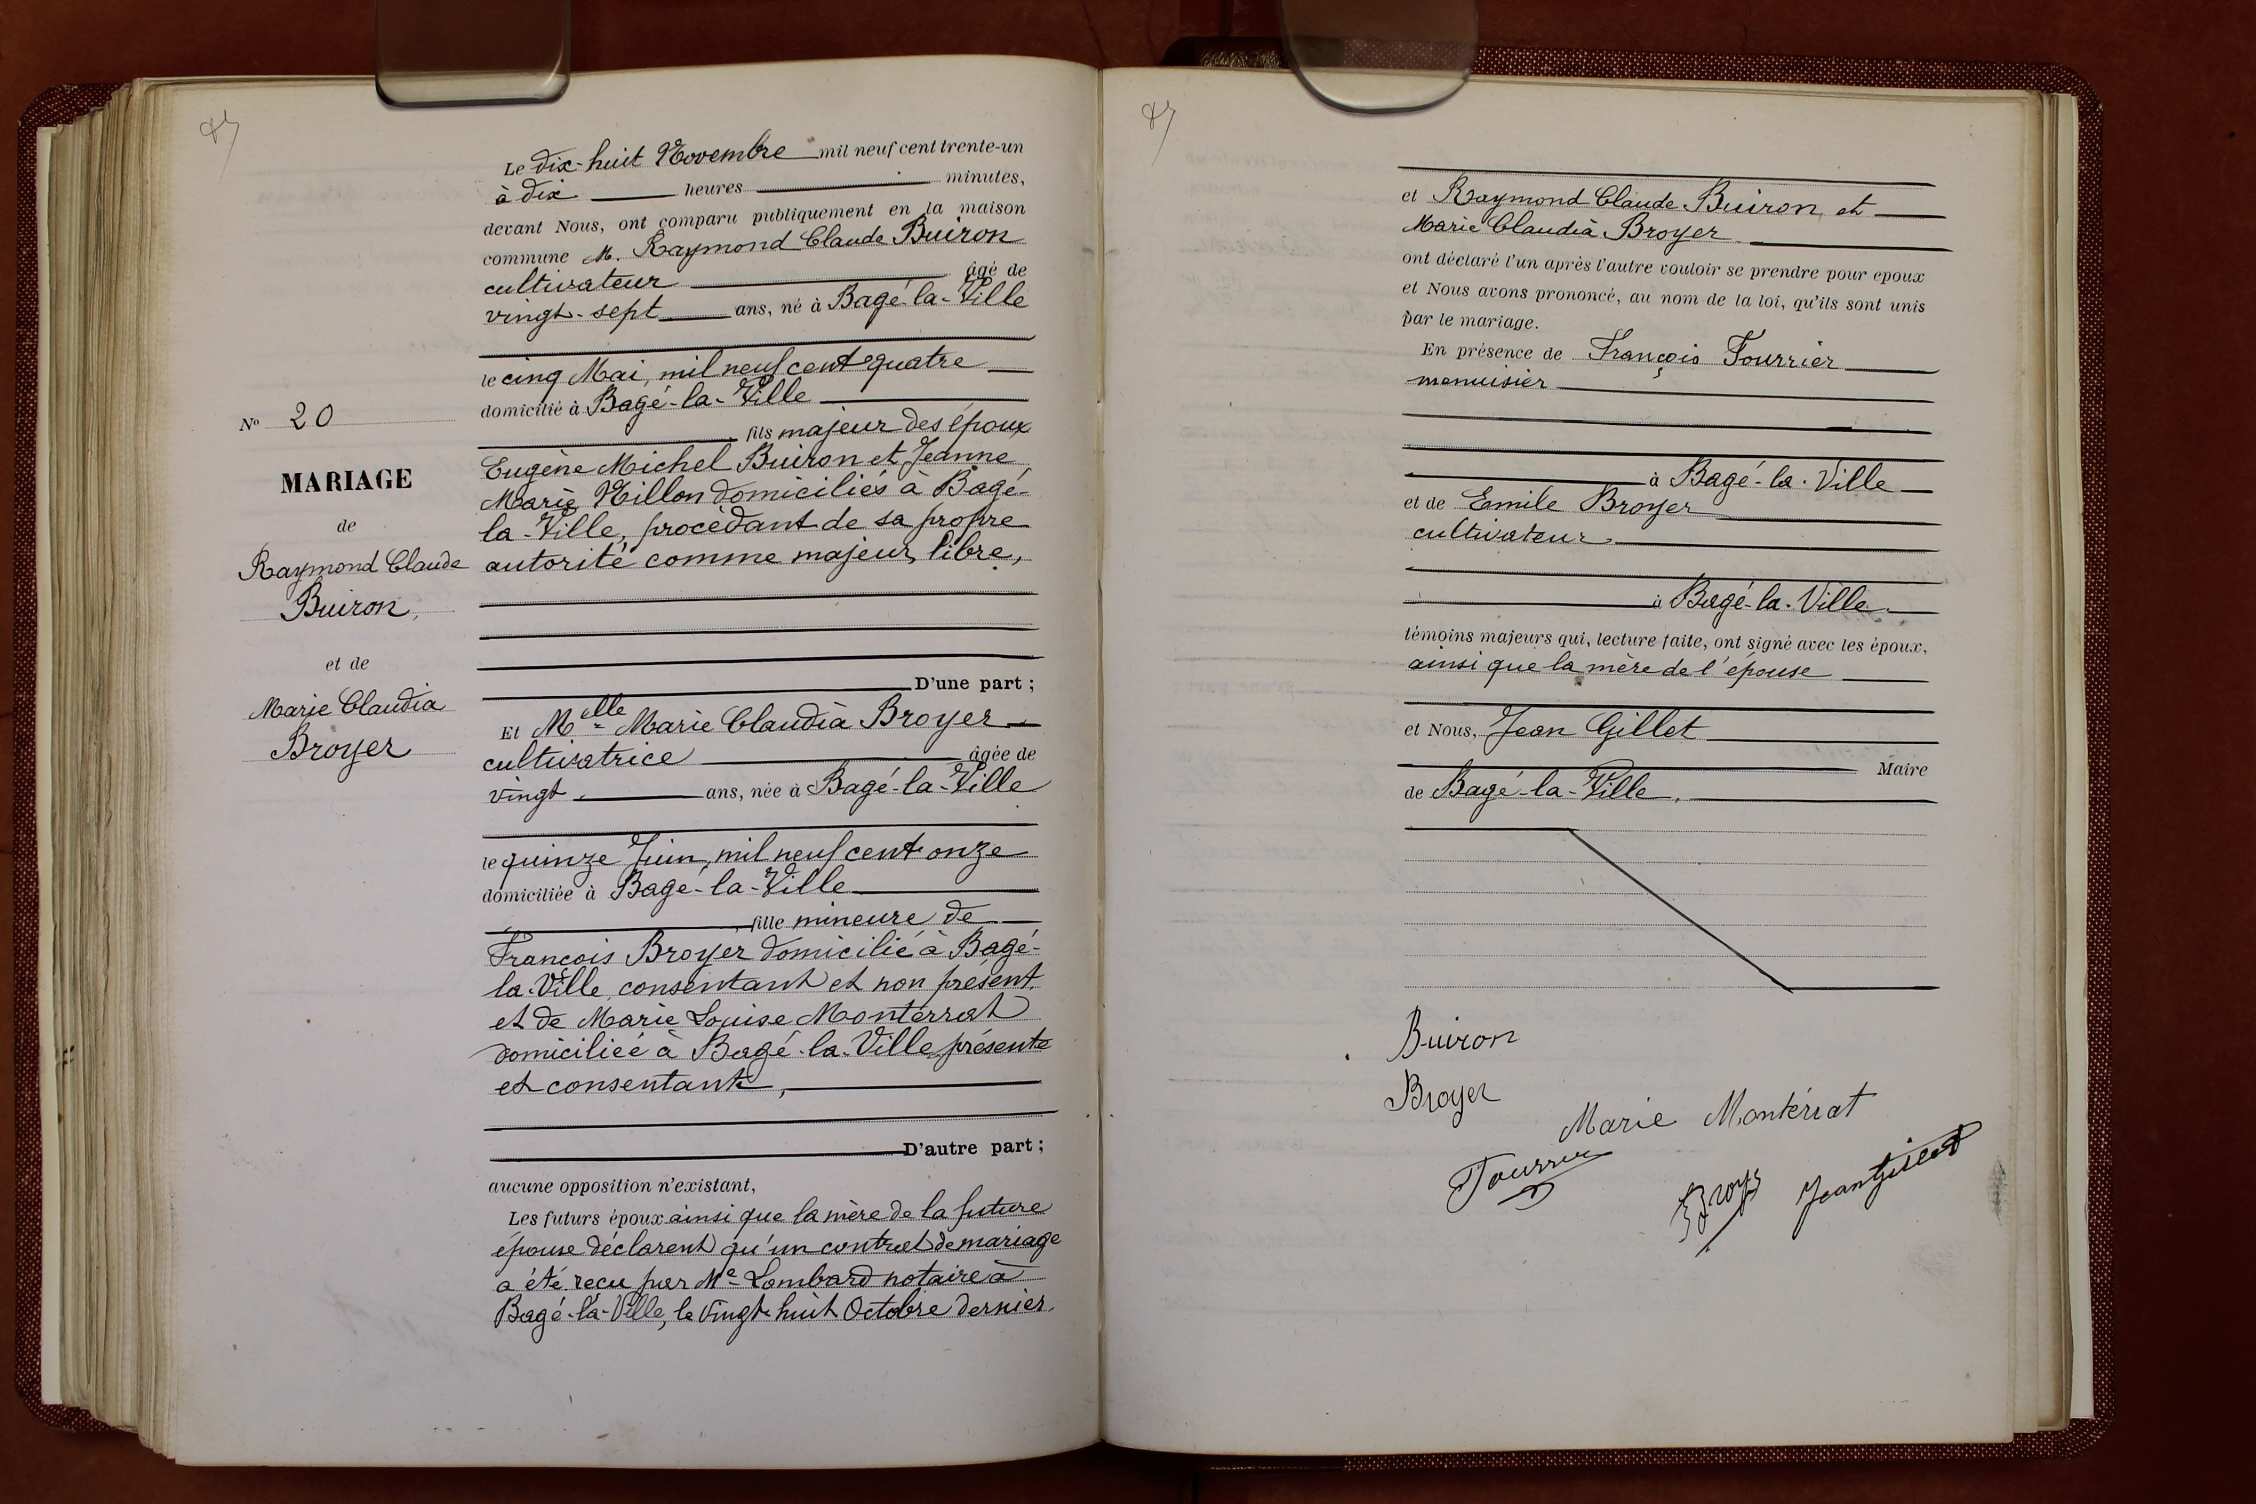 Le dix-huit Novembre mil neuf cent trente-un
à dix heures minutes,
devant Nous, ont comparu publiquement en la maison
commune M. Raymond Claude Buiron
cultivateur âgé de
vingt-sept ans, né à Bagé-la-Ville
le cinq Mai, mil neuf cent quatre
domicilié à Bagé-la-Ville
fils majeur des époux
Eugène Michel Buiron et Jeanne
Marie Nillon domiciliés à Bagé-
la-Ville, procédant de sa propre
autorité comme majeur, libre,
D'une part ;
Et Melle Marie Claudia Broyer
cultivatrice âgée de
vingt ans, née à Bagé-la-Ville
le quinze Juin, mil neuf cent onze
domiciliée à Bagé-la-Ville
fille mineure de
François Broyer domicilié à Bagé-
la-Ville, consentant et non présent,
et de Marie Louise Monterrat
domiciliée à Bagé-la-Ville, présente
et consentante,
D'autre part ;
aucune opposition n'existant,
Les futurs époux ainsi que la mère de la future
épouse déclarent qu'un contrat de mariage
a été reçu par Me Lombard notaire à
Bagé-la-Ville, le vingt huit Octobre dernier.
No 20
MARIAGE
de
Raymond Claude
Buiron,
et de
Marie Claudia
Broyer
et Raymond Claude Buiron, et
Marie Claudia Broyer
ont déclaré l'un après l'autre vouloir se prendre pour epoux
et Nous avons prononcé, au nom de la loi, qu'ils sont unis
par le mariage.
En présence de François Fourrier
menuisier
à Bagé-la-Ville
et de Emile Broyer
cultivateur
à Bagé-la-Ville
témoins majeurs qui, lecture faite, ont signé avec les époux,
ainsi que la mère de l'épouse
et Nous, Jean Gillet
Maire
de Bagé-la-Ville.
Buiron
Broyer
Marie Monterrat
Fourrier
Broyer
Jean Gillet